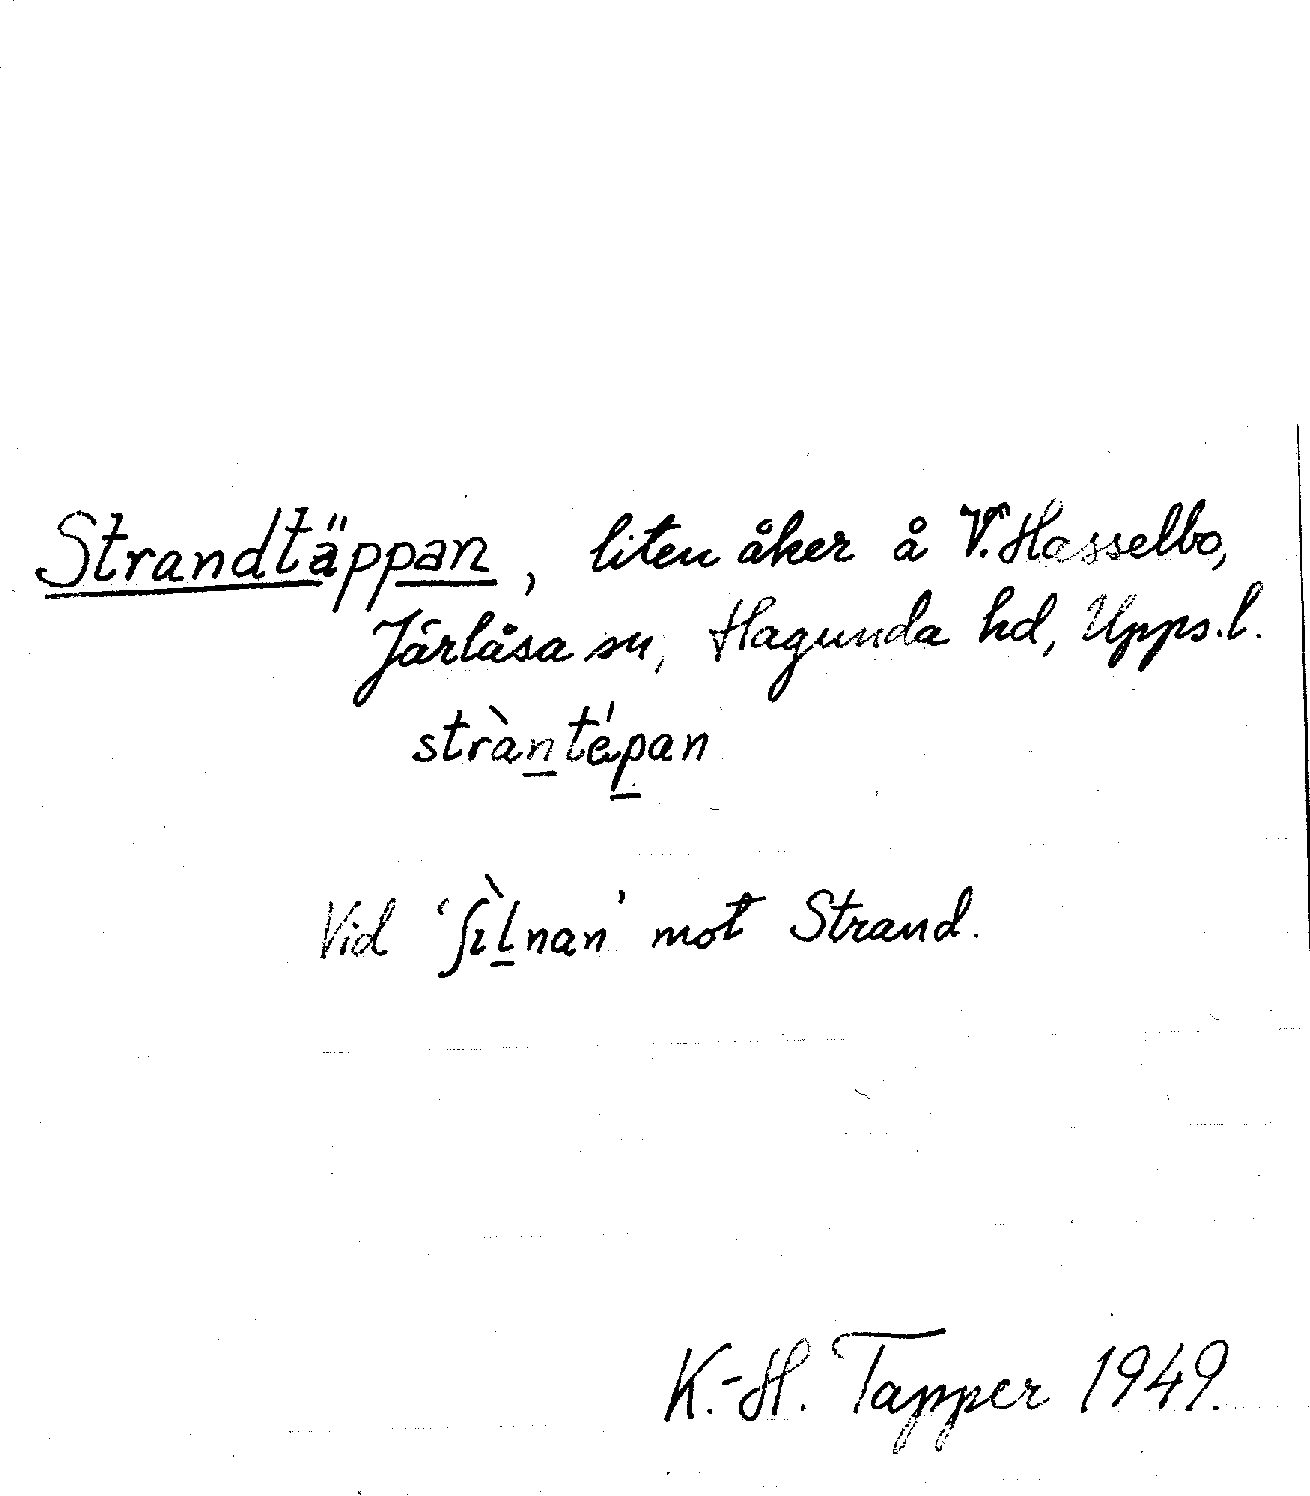 Strandtäppan, liten åker å V. Hasselbo,
Järlåsa sn, Hagunda hd, Upps. l.
stràn̲tép̲an
Vid ‘ʃɪ̀l̲nan’ mot Strand.
K.-H. Tapper 1949.